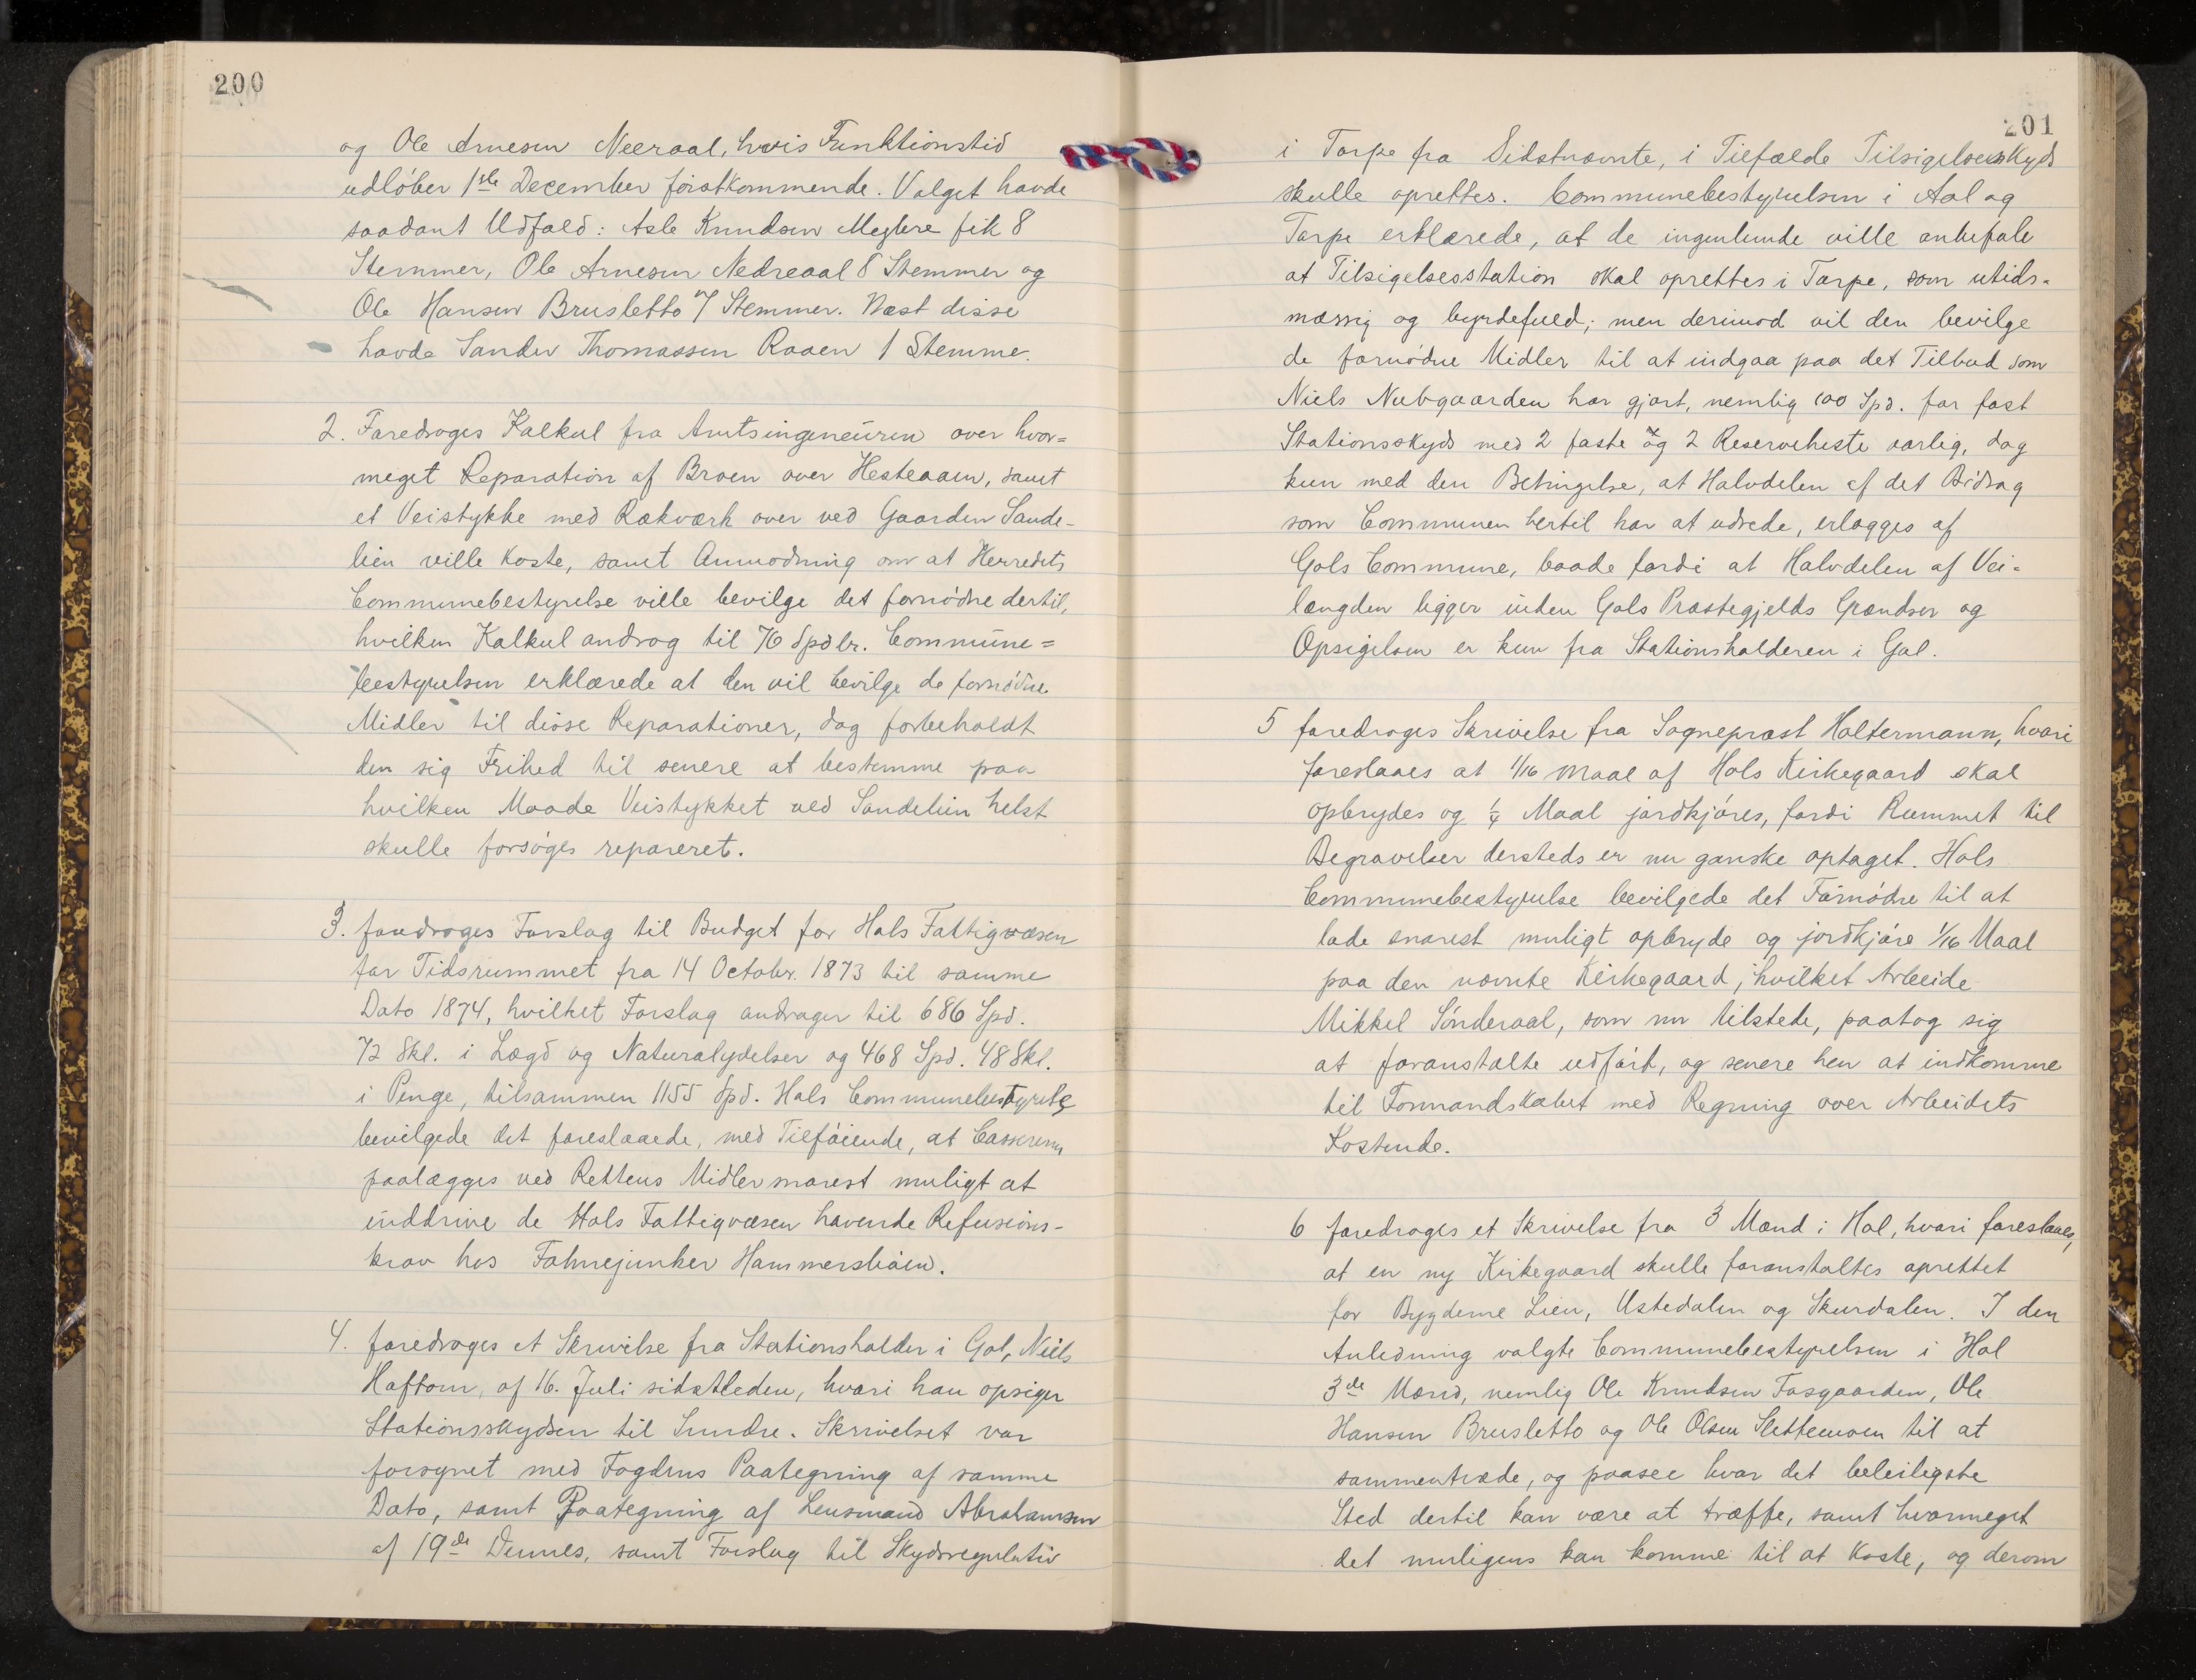 200
og Ole Arnesen Neeraal, hvis Funktionstid
udløber 1ste December førstkommende. Valget havde
saadant Udfald: Asle Knudsen Meghere fik 8
Stemmer, Ole Arnesen Nedreaal 8 Stemmer og
Ole Hansen Brusletto 7 Stemmer. Næst disse
havde Sander Thomassen Raaen 1 Stemme.
2. Foredroges Kalkul fra Amtsingeneuren over hvor=
meget Reparation af Broen over Hesteaaen, samt
et Veistykke med Rækværk over ved Gaarden Sande-
lien ville koste, samt Anmodning om at Herredets
Communebestyrelse ville bevilge det fornødne dertil,
hvilken Kalkul androg til 76 Spdlr. Commune=
bestyrelsen erklærede at den vil bevilge de fornødne
Midler til disse Reparationer, dog forbeholdt
den sig Frihed til senere at bestemme paa
hvilken Maade Veistykket ved Sandelien helst
skulle forsøges repareret.
3. foredroges Forslag til Budget for Hols Fattigvæsen
for Tidsrummet fra 14 Octobr. 1873 til samme
Dato 1874, hvilket Forslag andrager til 686 Spd.
72 Skl. i Lægd og Naturalydelser og 468 Spd. 48 Skl.
i Penge, tilsammen 1155 Spd. Hols Communebestyrelse
bevilgede det foreslaaede, med Tilføiende, at Casserern
paalægges ved Rettens Midler snarest muligt at
inddrive de Hols Fattigvæsen havende Refusions-
krav hos Fahnejunker Hammersbøen.
4. foredroges et Skrivelse fra Stationsholder i Gol, Niels
Haftorn, af 16. Juli sidstleden, hvori han opsiger
Stationsskydsen til Sundre. Skrivelset var
forsynet med Fogdens Paategning af samme
Dato, samt Paategning af Lensmand Abrahamsen
af 19de Dennes, samt Forslag til Skydsregulativ
201
i Torpe fra Sidstnævnte, i Tilfælde Tilsigelsesskyds
skulle oprettes. Communebestyrelsen i Aal og
Torpe erklærede, at de ingenlunde ville anbefale
at Tilsigelsesstation skal oprettes i Torpe, som utids-
mæssig og byrdefuld; men derimod vil den bevilge
de fornødne Midler til at indgaa paa det Tilbud som
Niels Nubgaarden har gjort, nemlig 100 Spd. for fast
Stationsskyds med 2 faste og 2 Reserveheste aarlig, dog
kun med den Betingelse, at Halvdelen af det Bidrag
som Communen hertil har at udrede, erlægges af
Gols Commune, baade fordi at Halvdelen af Vei-
længden ligger inden Gols Præstegjelds Grændser og
Opsigelsen er kun fra Stationsholderen i Gol.
5 foredroges Skrivelse fra Sognepræst Holtermann, hvori
foreslaaes at 1/16 Maal af Hols Kirkegaard skal
opbrydes og 1/4 Maal jordkjøres, fordi Rummet til
Begravelser dersteds er nu ganske optaget. Hols
Communebestyrelse bevilgede det Fornødne til at
lade snarest muligt opbryde og jordkjøre 1/16 Maal
paa den nævnte Kirkegaard, hvilket Arbeide
Mikkel Sønderaal, som nu tilstede, paatog sig
at foranstalte udført, og senere hen at indkomme
til Formandskabet med Regning over Arbeidets
Kostende.
6 foredroges et Skrivelse fra 3 Mænd i Hol, hvori foreslaaes,
at en ny Kirkegaard skulle foranstaltes oprettet
for Bygderne Lien, Ustedalen og Skurdalen. I den
Anledning valgte Communebestyrelsen i Hol
3de Mænd, nemlig Ole Knudsen Tosgaarden, Ole
Hansen Brusletto og Ole Olsen Slettemoen til at
sammentræde, og paasee hvor det beleiligste
Sted dertil kan være at træffe, samt hvormeget
det muligens kan komme til at koste, og derom